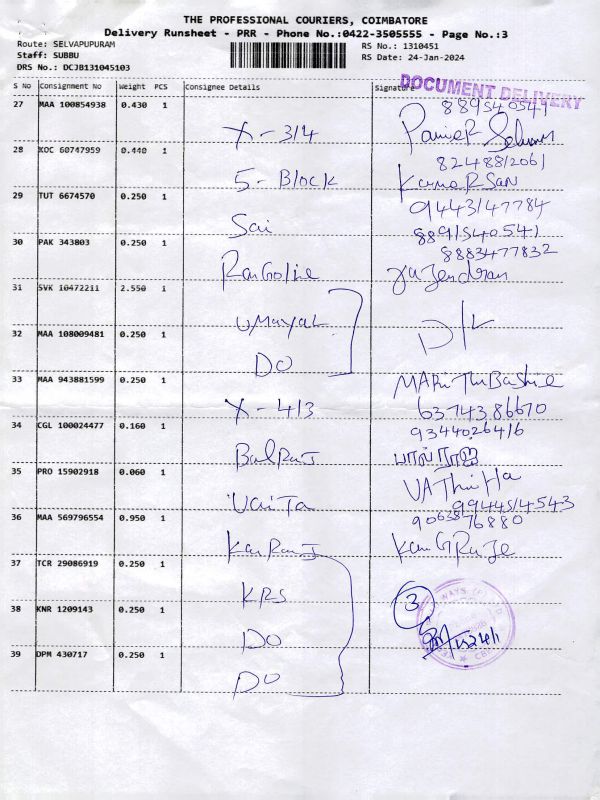 THE PROFESSIONAL COURIERS, COIMBATORE
Delivery Runsheet - PRR - Phone No.:0422-3505555 - Page No.:3
Route: SELVAPUPURAM
Staff: SUBBU
DRS No.: DCJB131045103
RS No.: 1310451
RS Date: 24-Jan-2024
DOCUMENT DELIVERY
S No Consignment No Weight PCS Consignee Details Signature
27 MAA 100854938 0.430 1
X-3/4
889540541
28 XOC 60747959 0.440 1
5-Block
8248812061
29 TUT 6674570 0.250 1
Sai
9443147784
8891540541
30 PAK 343803 0.250 1
8883477832
31 SVK 10472211 2.550 1
UMAYAL
D/L
32 MAA 108009481 0.250 1
DO
33 MAA 943881599 0.250 1
X-4/3
6374386670
34 CGL 100024477 0.160 1
9344026416
BalRaJ
பால்ராஜ்
35 PRO 15902918 0.060 1
9944514543
36 MAA 569796554 0.950 1
9063876880
37 TCR 29086919 0.250 1
KRS
3
38 KNR 1209143 0.250 1
DO
39 DPM 430717 0.250 1
DO